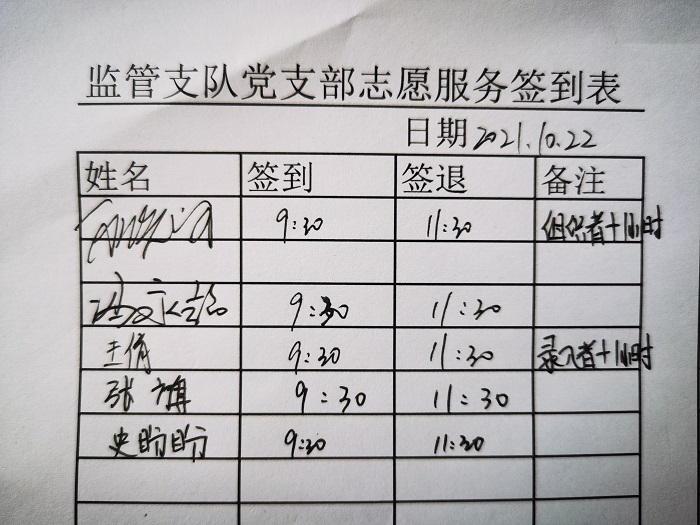 监管支队党支部志愿服务签到表
日期 2021.10.22
姓名 签到 签退 备注
9:30 11:30 组织者+1小时
9:30 11:30
王倩 9:30 11:30 录入者+1小时
张 9:30 11:30
史盼盼 9:30 11:30